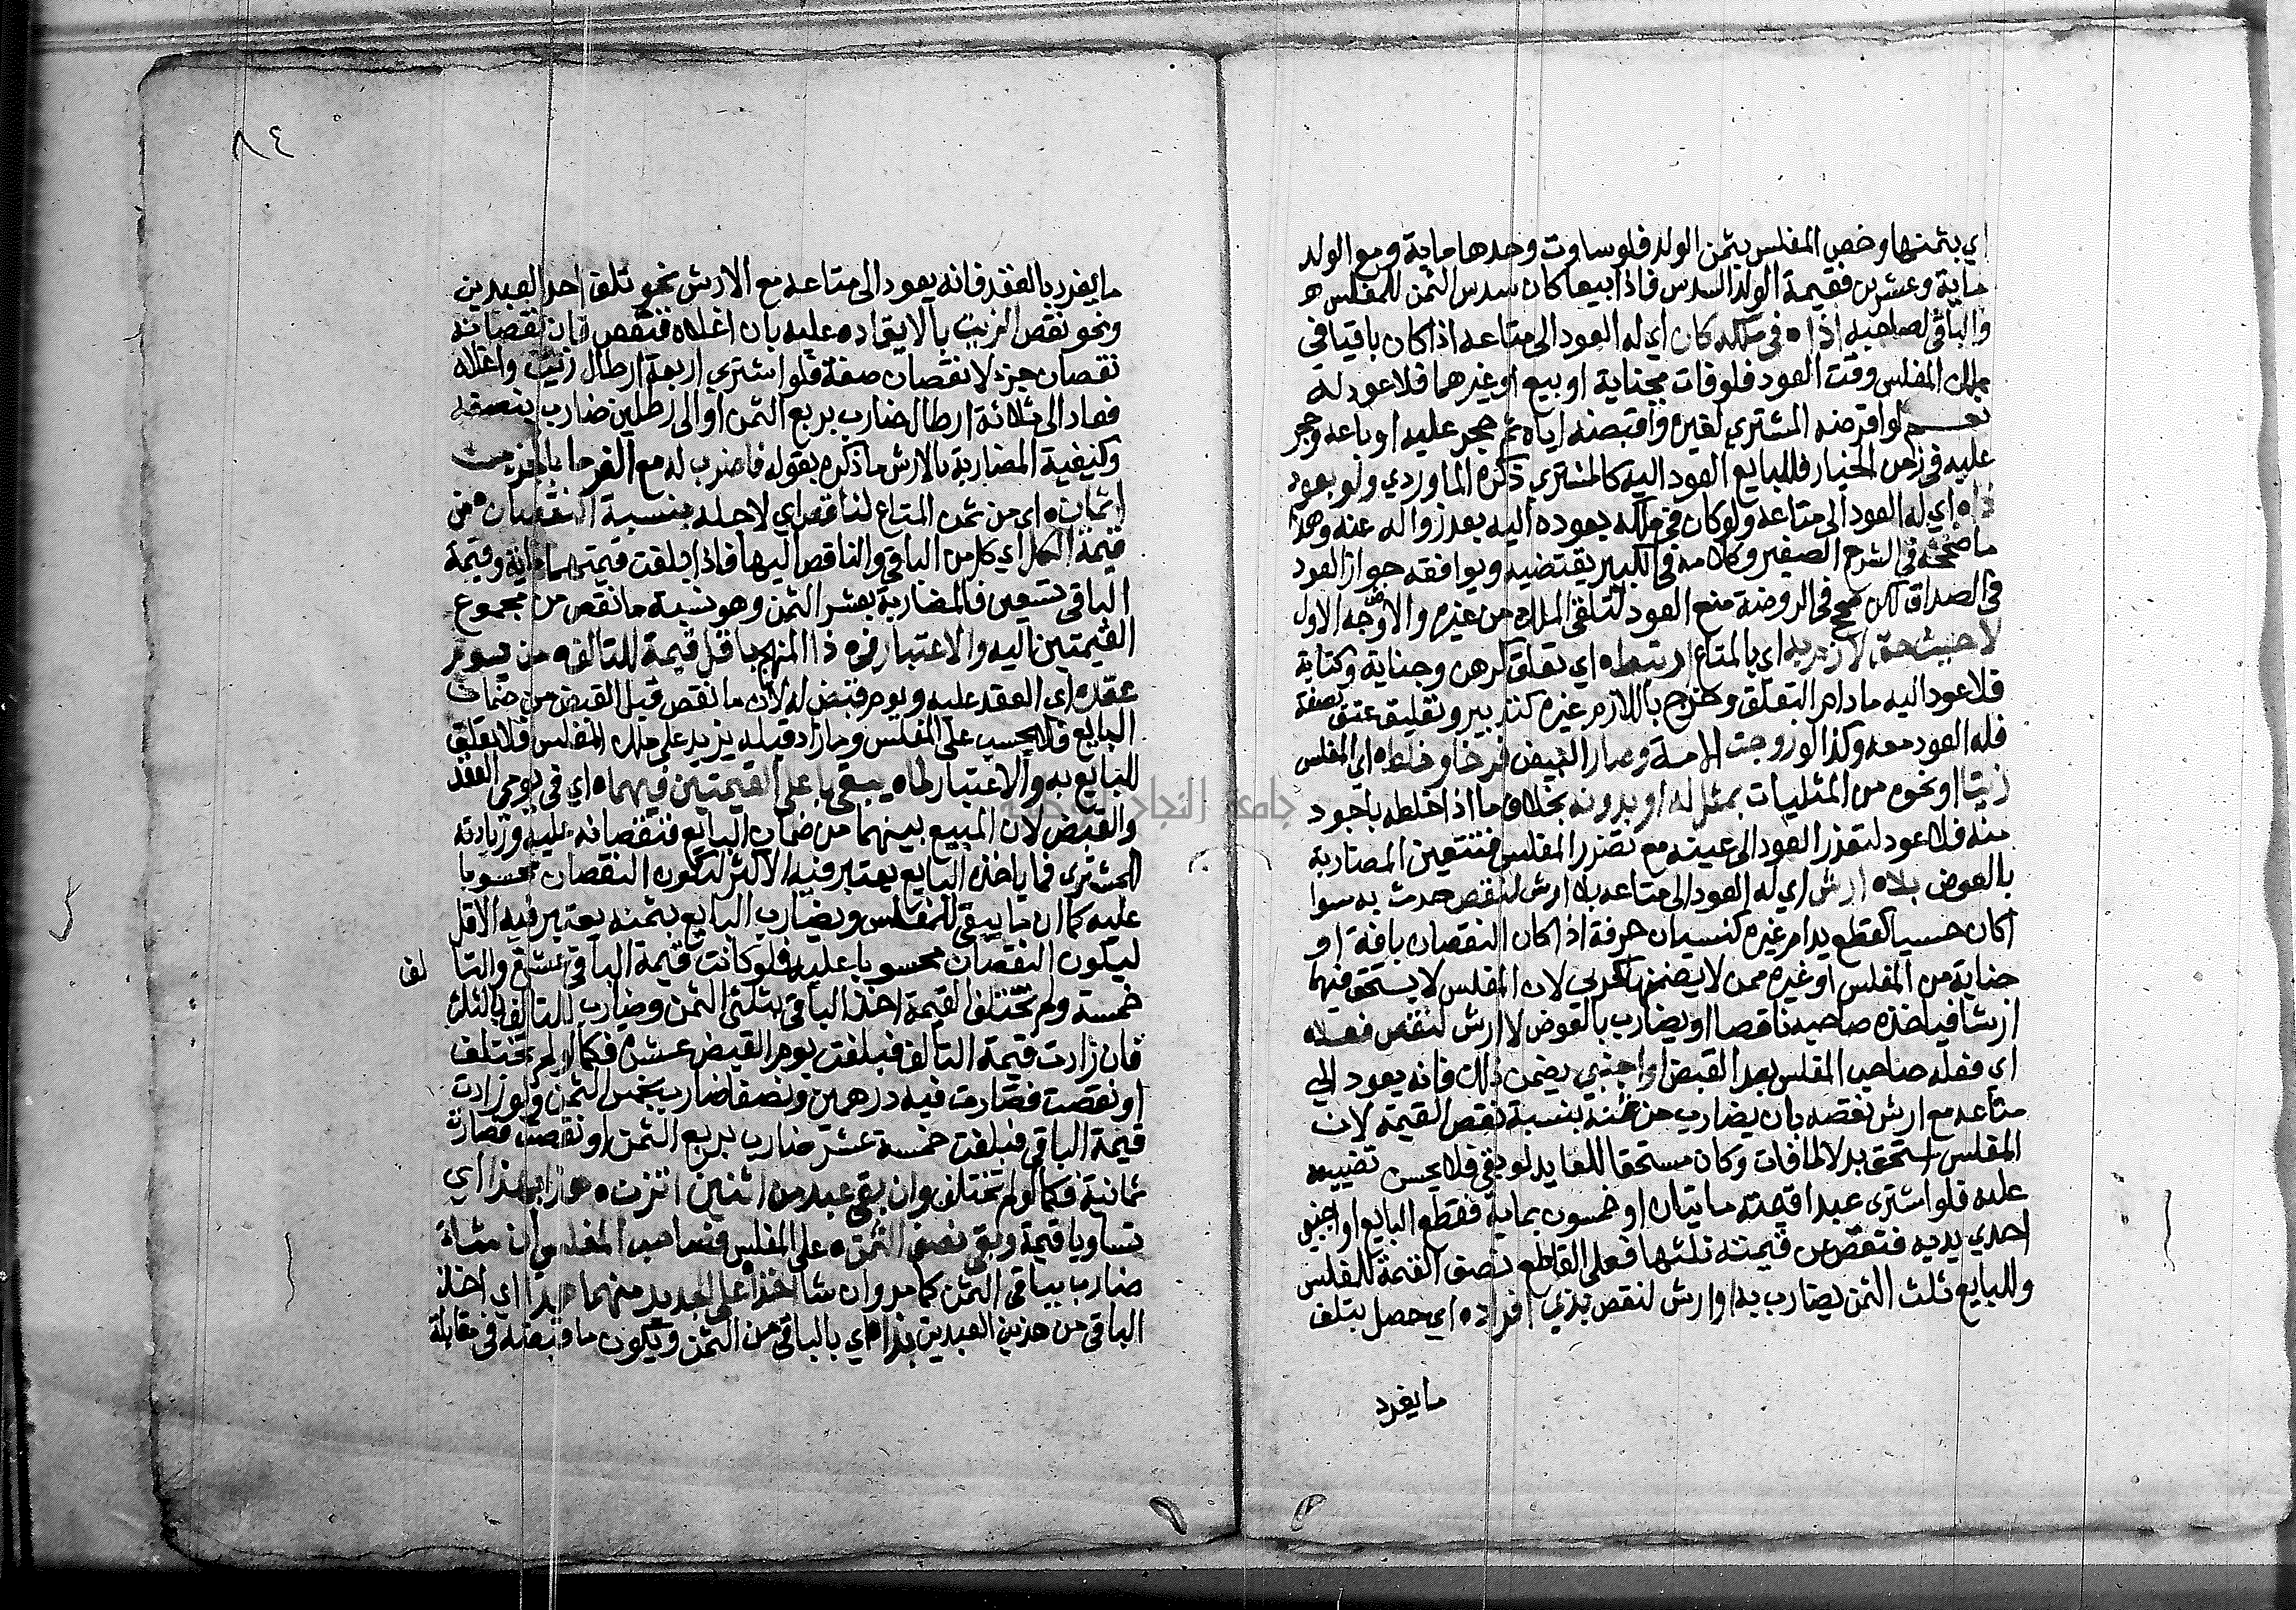 اي بثمنها وخص المفلس بثمن الولد فلو ساوت وحدها ماية ومع الولد
ماية وعشرين فقيمة الولد السدس فاذا بيعا كان سدس الثمن للمفلس
والباقي لصاحبه اذا ه في ملكه كان اي له العود الى متاعه اذا كان باقيا في
ملك المفلس وقت العود فلو فات بجناية او بيع او غيرهما فلا عود له
نعم لو اقرضه المشتري لغيره واقبضه اياه ثم حجر عليه او باعه وحجر
عليه في زمن الخيار فللبايع العود اليه كالمشتري ذكره الماوردي ولو بعود
اي له العود الى متاعه ولو كان في ملكه بعوده اليه بعد زواله عنه وهذا
ما صححه في الشرح الصغير وكلامه في الكبير يقتضيه ويوافقه جواز العود
في الصداق لكن صحح في الروضة منع العود لتلقي الملك من غيره والاوجه الاول
لا حيث حق لازم به اي بالمتاع ارتبط ه اي تعلق كرهن وجناية وكتابة
فلا عود اليه ما دام التعلق وخرج باللازم غيره كتدبير وتعليق عتق بصفة
فله العود معه وكذا لو زوجت الامة وصار البيض فرخا وخلط ه اي المفلس
زيتا او نحوه من المثليات بمثل له او بدونه بخلاف ما اذا خلطه باجود
منه فلا عود لتعذر العود الى عينه مع تضرر المفلس فتتعين المضاربة
بالعوض بلا ه ارش اي له العود الى متاعه بلا ارش لنقص حدث به سوا
اكان حسيا كقطع يد ام غيره كنسيان حرفة اذا كان النقصان بافة او
جناية من المفلس او غيره ممن لا يضمنها كحربي لان المفلس لا يستحق فيها
ارشا فياخذه صاحبه ناقصا او يضارب بالعوض لا ارش لنقص فعله
اي فعله صاحب المفلس بعد القبض او اجنبي يضمن ذلك فانه يعود الى
متاعه مع ارش نقصه بان يضارب من ثمنه بنسبة نقص القيمة لان
المفلس استحق بدلا لما فات وكان مستحقا للعايد لو بقي فلا يحسن تضييعه
عليه فلو اشترى عبدا قيمته مايتان او خمسون بماية فقطع البايع او اجنبي
احدي يديه فنقص من قيمته ثلثها فعلى القاطع نصف القيمة للمفلس
وللبايع ثلث الثمن يضارب به او ارش لنقص بذي افراد ه اي حصل بتلف
ما يفرد
٨٤
ما يفرد بالعقد فانه يعود الى متاعه مع الارش نحو تلف احد العبدين
ونحو نقص الزيت بالايقاده عليه بان اغلاه فنقص فان نقصانه
نقصان جزء لا نقصان صفة فلو اشترى اربعة ارطال زيت واغلاه
فعاد الى ثلاثة ارطال ضارب بربع الثمن او الى رطلين ضارب بنصفه
وكيفية المضاربة بالارش ما ذكره بقوله فاضرب له مع الغرما بالجزء من
اثمان ه اي من ثمن المتاع لناقص اي لاجله بنسبة النقصان ه من
قيمة الكل اي كل من الباقي والناقص اليها فاذا بلغت قيمتهما ماية وقيمة
الباقي تسعين فالمضاربة بعشر الثمن وهو نسبة ما نقص من مجموع
القيمتين اليه والاعتبار في ه ذا المنهج باقل قيمة للتالف ه من يوم
عقد ه اي العقد عليه ويوم قبض له لان ما نقص قبل القبض من ضمان
البايع فلا يحسب على المفلس وما زاد قبله يزيد على ملك المفلس فلا تعلق
للبايع به والاعتبار لما ه يبقى باعلى القيمتين فيهما ه اي في يومي العقد
والقبض لان المبيع بينهما من ضمان البايع فنقصانه عليه وزيادته
للمشتري فما ياخذه البايع يعتبر فيه الاكثر ليكون النقصان محسوبا
عليه كما ان ما يبقى للمفلس ويضارب البايع بثمنه يعتبر فيه الاقل
ليكون النقصان محسوبا عليه فلو كانت قيمة الباقي عشرة والتا لف
خمسة ولم تختلف القيمة اخذ الباقي بثلثي الثمن وضارب للتالف بالثلث
فان زادت قيمة التالف فبلغت يوم القبض عشرة فكما لو لم تختلف
او نقصت فصارت فيه درهمين ونصفا ضارب بخمس الثمن ولو زادت
قيمة الباقي فبلغت خمسة عشر ضارب بربع الثمن او نقصت فصارت
ثمانية فكما لو لم تختلف وان بقي عبد من اثنين اتزنت ه
تساويا قيمة وبقي نصف الثمن ه على المفلس فصاحب المفلس ان شاء
ضارب بباقي الثمن كما مر وان شا اخذ على الجديد منهما ه ذا اي اخذ
الباقي من هذين العبدين بذا ه اي بالباقي من الثمن ويكون ما قبضه في مقابلة